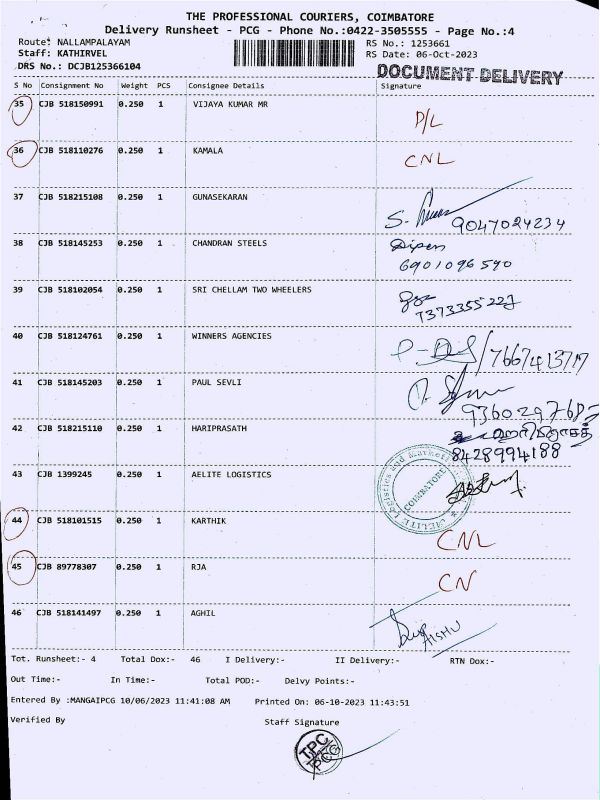 THE PROFESSIONAL COURIERS, COIMBATORE
Delivery Runsheet - PCG - Phone No.:0422-3505555 - Page No.:4
Route: NALLAMPALAYAM RS No.: 1253661
Staff: KATHIRVEL RS Date: 06-Oct-2023
DRS No.: DCJB125366104 DOCUMENT DELIVERY
S No Consignment No Weight PCS Consignee Details Signature
35 CJB 518150991 0.250 1 VIJAYA KUMAR MR D/L
36 CJB 518110276 0.250 1 KAMALA CNL
37 CJB 518215108 0.250 1 GUNASEKARAN S. 9047024234
38 CJB 518145253 0.250 1 CHANDRAN STEELS Dipen
6901096590
39 CJB 518102054 0.250 1 SRI CHELLAM TWO WHEELERS
40 CJB 518124761 0.250 1 WINNERS AGENCIES
41 CJB 518145203 0.250 1 PAUL SEVLI
42 CJB 518215110 0.250 1 HARIPRASATH ஹரிபிரசாத்
8428994188
43 CJB 1399245 0.250 1 AELITE LOGISTICS AELITE Logistics and Market COIMBATORE
44 CJB 518101515 0.250 1 KARTHIK CNL
45 CJB 89778307 0.250 1 RJA CN
46 CJB 518141497 0.250 1 AGHIL AISHU
Tot. Runsheet:- 4 Total Dox:- 46 I Delivery:- II Delivery:- RTN Dox:-
Out Time:- In Time:- Total POD:- Delvy Points:-
Entered By :MANGAIPCG 10/06/2023 11:41:08 AM Printed On: 06-10-2023 11:43:51
Verified By Staff Signature
TPC
PCG